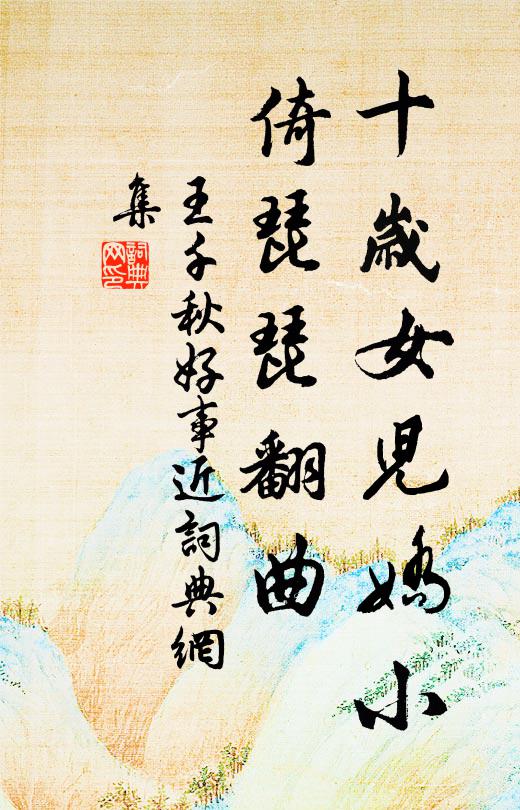 十歲女兒嬌小
倚琵琵翻曲
王千秋好事近詞典網
集
詞典
网印